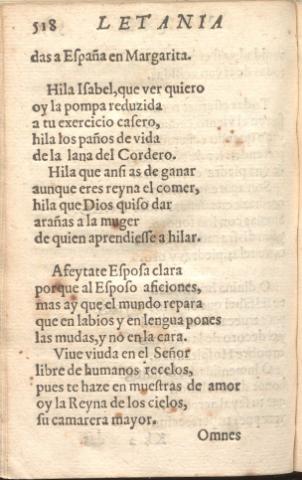 518 LETANIA
das a España en Margarita.
Hila Isabel, que ver quiero
oy la pompa reduzida
a tu exercicio casero,
hila los paños de vida
de la lana del Cordero.
Hila que ansi as de ganar
aunque eres reyna el comer,
hila que Dios quiso dar
arañas a la muger
de quien aprendiesse a hilar.
Afeytate Esposa clara
porque al Esposo aficiones,
mas ay que el mundo repara
que en labios y en lengua pones
las mudas, y no en la cara.
Viue viuda en el Señor
libre de humanos recelos,
pues te haze en muestras de amor
oy la Reyna de los cielos,
su camarera mayor.
Omnes